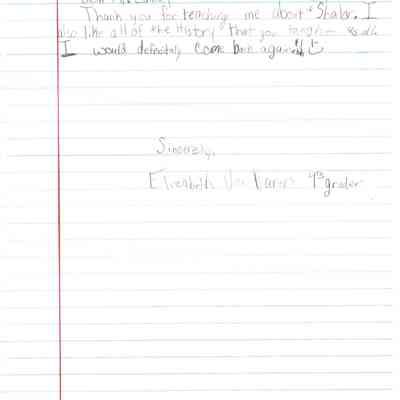 Thank you for teaching me about Shabar. I
also like all of the History that you
I would definitely come back again!! :)
Sincerely,
Elizabeth 4th grader